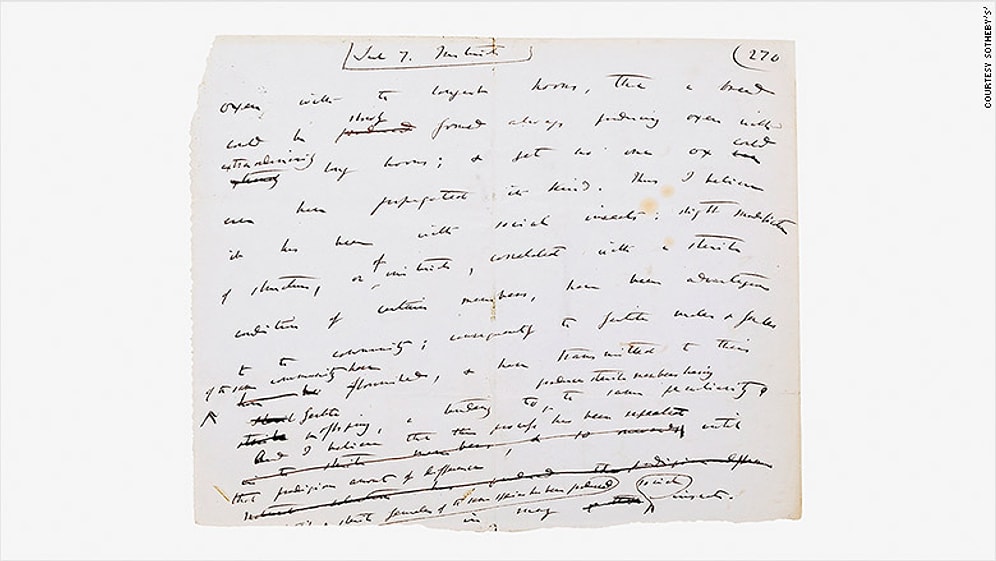 Instinct
270
oxen with the longest horns, that a breed
slowly
could be produced formed always producing oxen with
extraordinarily could
long horns; & yet no one ox
ever have propagated its kind. Thus I believe
it has been with social insects: slight modification
of structure, or of instinct, correlated with a sterile
condition of certain members, have been advantageous
to the community; consequently the fertile males & females
of the same community have
flourished, & have transmitted to their
fertile produce sterile members having
offspring, a tendency to the same peculiarity
And I believe that this process has been repeated until
that prodigious amount of difference
sterile females of the same species has been produced social
in many insects.
COURTESY SOTHEBY'S'